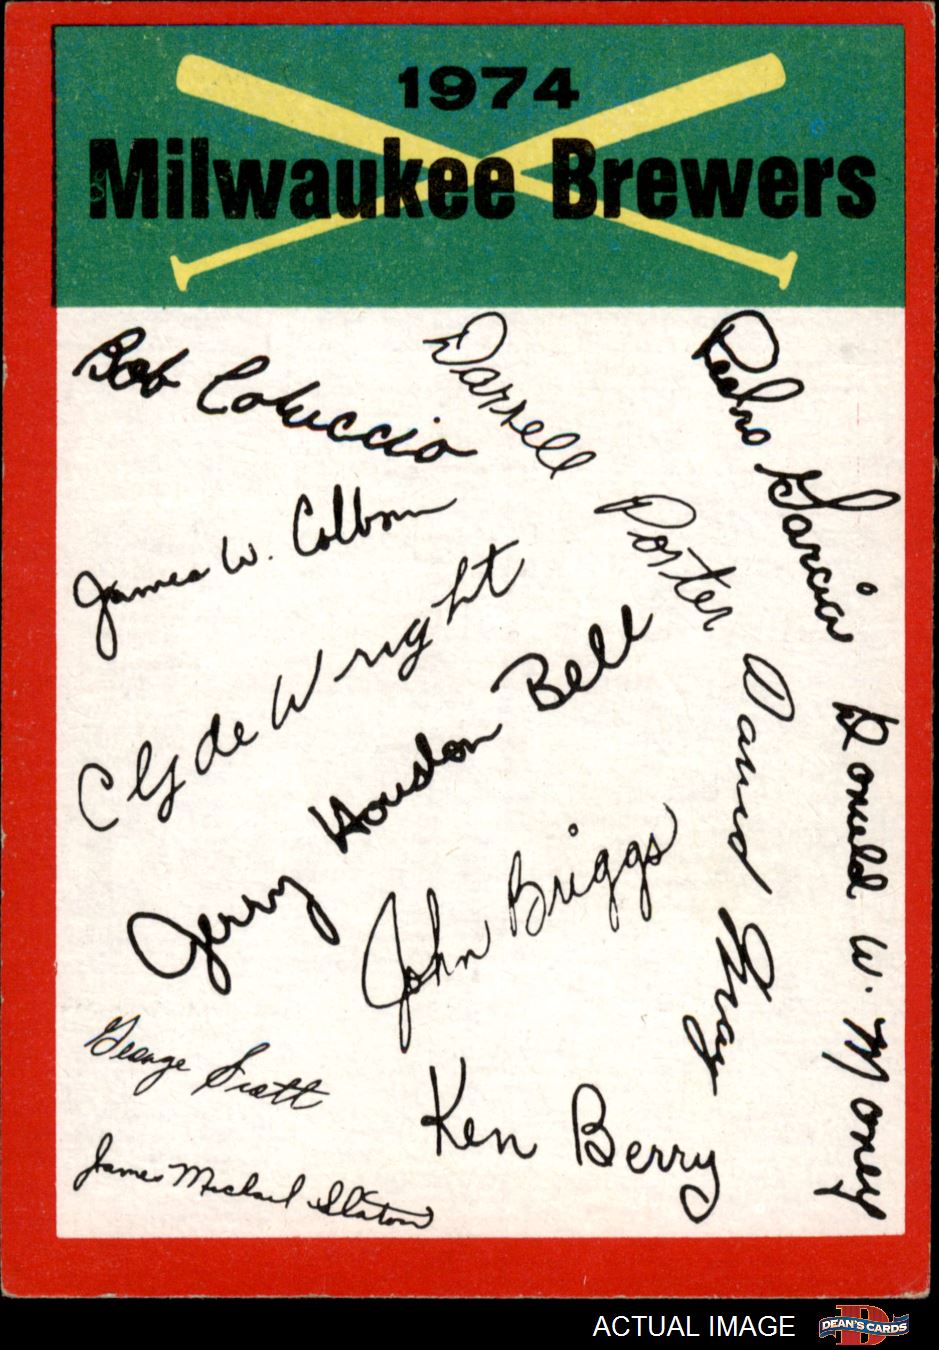 1974
Milwaukee Brewers
Bob Coluccio
Darrell Porter
Pedro Garcia
James W. Colborn
Clyde Wright
Jerry Houston Bell
David Gray
Donald W. Money
John Briggs
George Scott
Ken Berry
James Michael Slaton
ACTUAL IMAGE
DEAN'S CARDS